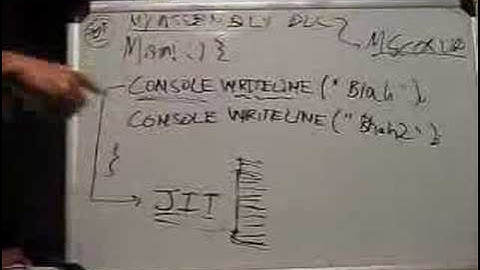 MYASSEMBLY DLL
Main() {
CONSOLE WRITELINE ("Blah");
CONSOLE WRITELINE ("Blah2");
}
JIT